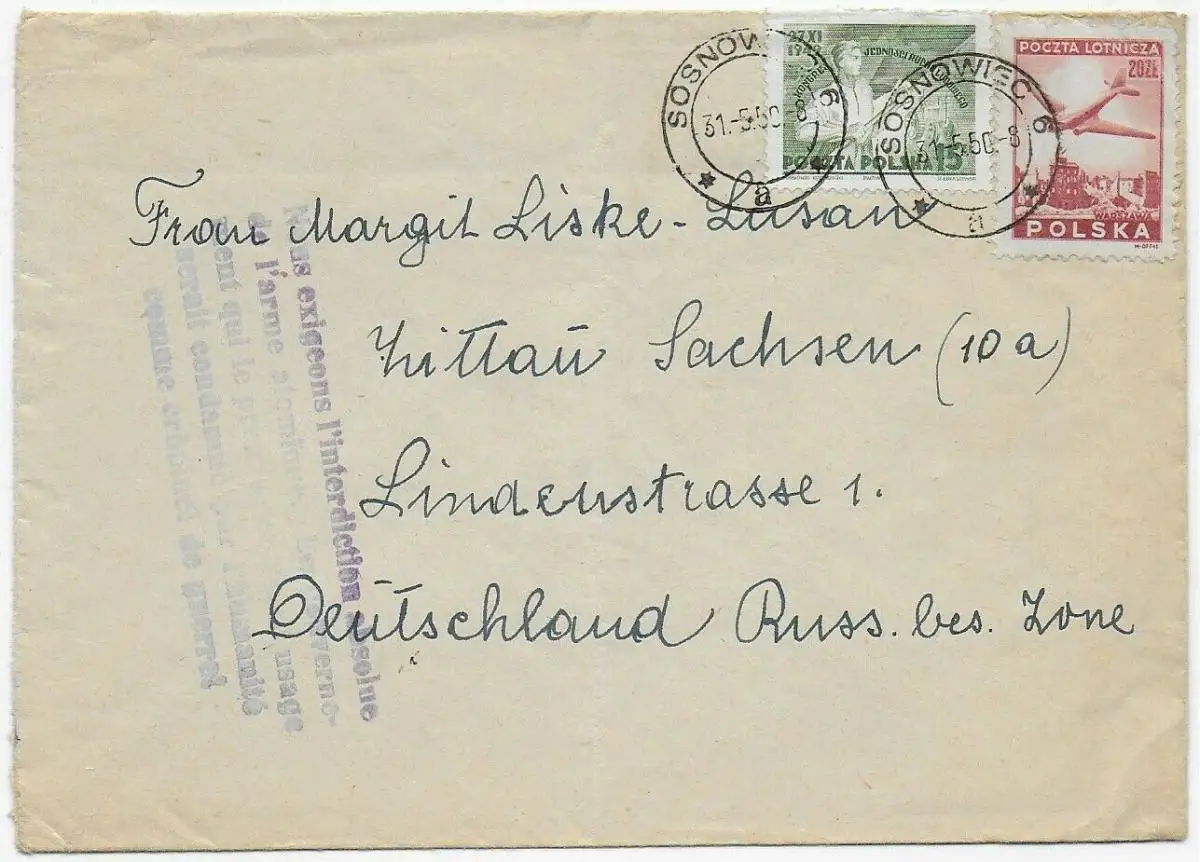 SOSNOWIEC 6
31.-5.50.-8
a
27.XI
1949
KONGRES JEDNOŚCI RUCHU LUDOWEGO
POCZTA POLSKA 15
SOSNOWIEC 6
31.-5.50.-8
a
POCZTA LOTNICZA
20ZŁ
WARSZAWA
POLSKA
Frau Margit Liske-Lusan
Zittau Sachsen (10a)
Lindenstrasse 1.
Deutschland Russ. bes. Zone
Nous exigeons l'interdiction absolue
de l'arme atomique. Le Gouverne-
ment qui le usage
serait condamné par l'humanité
comme criminel de guerre!